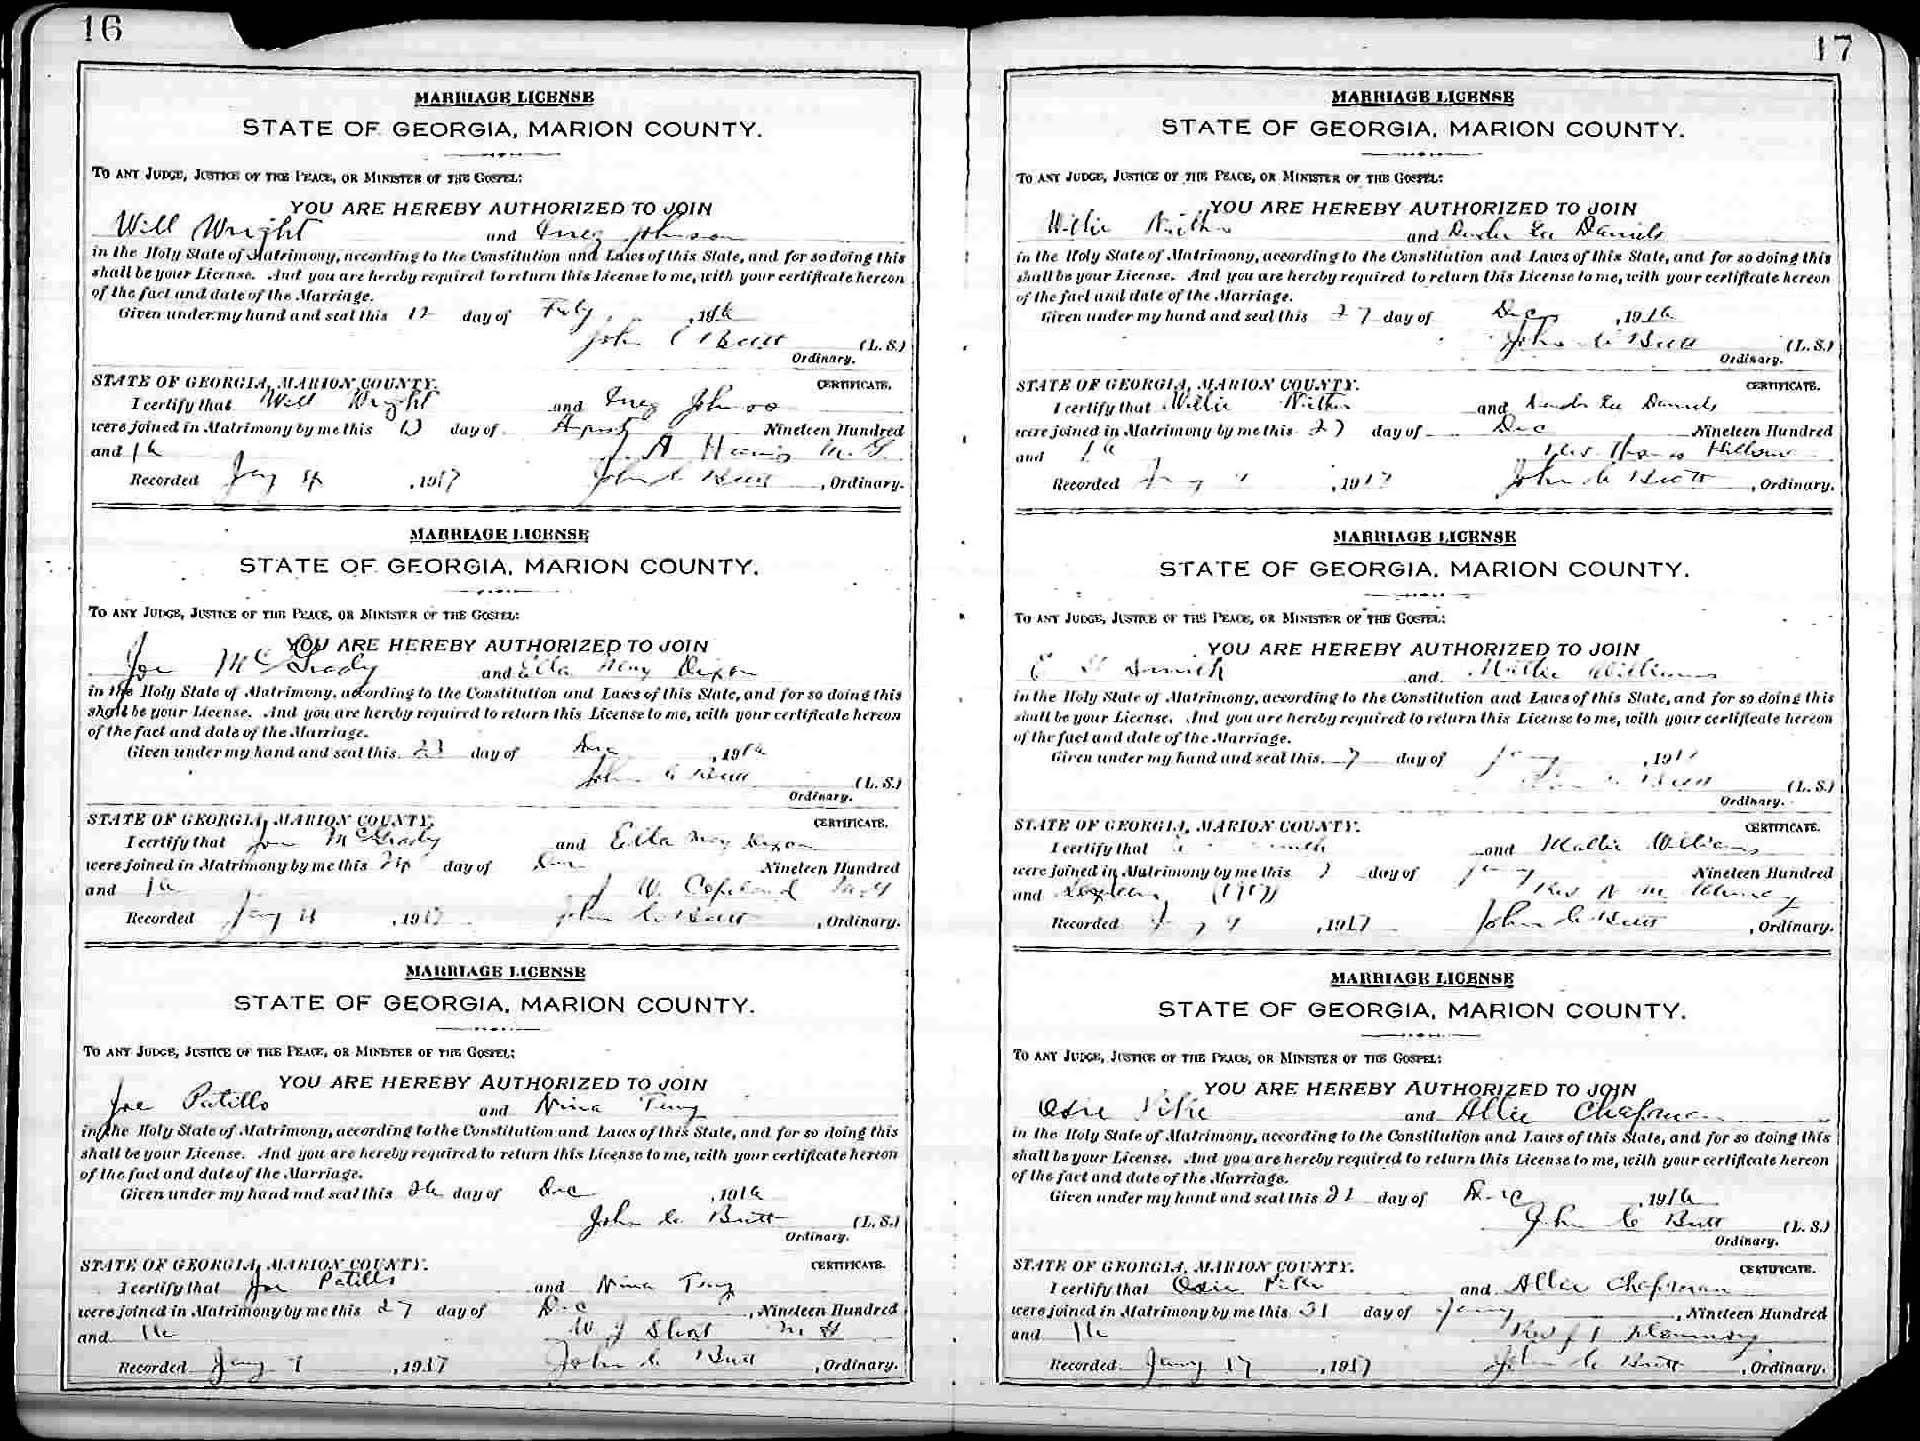 16
MARRIAGE LICENSE
STATE OF GEORGIA, MARION COUNTY.
TO ANY JUDGE, JUSTICE OF THE PEACE, OR MINISTER OF THE GOSPEL:
YOU ARE HEREBY AUTHORIZED TO JOIN
Will Wright and Inez Johnson
in the Holy State of Matrimony, according to the Constitution and Laws of this State, and for so doing this
shall be your License. And you are hereby required to return this License to me, with your certificate hereon
of the fact and date of the Marriage.
Given under my hand and seal this 12 day of , 1916
John C Butt (L. S.)
Ordinary.
STATE OF GEORGIA, MARION COUNTY. CERTIFICATE.
I certify that Will Wright and Inez Johnson
were joined in Matrimony by me this 13 day of Nineteen Hundred
and 16 A Harris M. G.
Recorded Jany 4 , 1917 John C Butt , Ordinary.
MARRIAGE LICENSE
STATE OF GEORGIA, MARION COUNTY.
TO ANY JUDGE, JUSTICE OF THE PEACE, OR MINISTER OF THE GOSPEL:
YOU ARE HEREBY AUTHORIZED TO JOIN
Joe McGrady and Ella May Dixon
in the Holy State of Matrimony, according to the Constitution and Laws of this State, and for so doing this
shall be your License. And you are hereby required to return this License to me, with your certificate hereon
of the fact and date of the Marriage.
Given under my hand and seal this 23 day of Dec , 1916
John C Butt (L. S.)
Ordinary.
STATE OF GEORGIA, MARION COUNTY. CERTIFICATE.
I certify that Joe McGrady and Ella May Dixon
were joined in Matrimony by me this 24 day of Dec Nineteen Hundred
and 16 J W. Copeland
Recorded Jany , 1917 John C Butt , Ordinary.
MARRIAGE LICENSE
STATE OF GEORGIA, MARION COUNTY.
TO ANY JUDGE, JUSTICE OF THE PEACE, OR MINISTER OF THE GOSPEL:
YOU ARE HEREBY AUTHORIZED TO JOIN
Joe Patillo and Nina
in the Holy State of Matrimony, according to the Constitution and Laws of this State, and for so doing this
shall be your License. And you are hereby required to return this License to me, with your certificate hereon
of the fact and date of the Marriage.
Given under my hand and seal this 26 day of Dec , 1916
John C Butt (L. S.)
Ordinary.
STATE OF GEORGIA, MARION COUNTY. CERTIFICATE.
I certify that Joe Patillo and Nina
were joined in Matrimony by me this 27 day of Dec , Nineteen Hundred
and 16 W J Short M G
Recorded Jany , 1917 John C Butt , Ordinary.
17
MARRIAGE LICENSE
STATE OF GEORGIA, MARION COUNTY.
TO ANY JUDGE, JUSTICE OF THE PEACE, OR MINISTER OF THE GOSPEL:
YOU ARE HEREBY AUTHORIZED TO JOIN
Willie and Lee Daniels
in the Holy State of Matrimony, according to the Constitution and Laws of this State, and for so doing this
shall be your License. And you are hereby required to return this License to me, with your certificate hereon
of the fact and date of the Marriage.
Given under my hand and seal this 27 day of Dec , 1916
John C Butt (L. S.)
Ordinary.
STATE OF GEORGIA, MARION COUNTY. CERTIFICATE.
I certify that Willie and Lee Daniels
were joined in Matrimony by me this 27 day of Dec Nineteen Hundred
and 16 Rev Thomas
Recorded , 1917 John C Butt , Ordinary.
MARRIAGE LICENSE
STATE OF GEORGIA, MARION COUNTY.
TO ANY JUDGE, JUSTICE OF THE PEACE, OR MINISTER OF THE GOSPEL:
YOU ARE HEREBY AUTHORIZED TO JOIN
E and Mattie Williams
in the Holy State of Matrimony, according to the Constitution and Laws of this State, and for so doing this
shall be your License. And you are hereby required to return this License to me, with your certificate hereon
of the fact and date of the Marriage.
Given under my hand and seal this 7 day of Jany , 1917
John C Butt (L. S.)
Ordinary.
STATE OF GEORGIA, MARION COUNTY. CERTIFICATE.
I certify that and Mattie Williams
were joined in Matrimony by me this 7 day of Jany Nineteen Hundred
and (1917) Rev N M
Recorded , 1917 John C Butt , Ordinary.
MARRIAGE LICENSE
STATE OF GEORGIA, MARION COUNTY.
TO ANY JUDGE, JUSTICE OF THE PEACE, OR MINISTER OF THE GOSPEL:
YOU ARE HEREBY AUTHORIZED TO JOIN
Osie Pike and Allie Chapman
in the Holy State of Matrimony, according to the Constitution and Laws of this State, and for so doing this
shall be your License. And you are hereby required to return this License to me, with your certificate hereon
of the fact and date of the Marriage.
Given under my hand and seal this 21 day of Dec , 1916
John C Butt (L. S.)
Ordinary.
STATE OF GEORGIA, MARION COUNTY. CERTIFICATE.
I certify that Osie Pike and Allie Chapman
were joined in Matrimony by me this 31 day of Jany , Nineteen Hundred
and 16 Rev
Recorded Jany 17 , 1917 John C Butt , Ordinary.